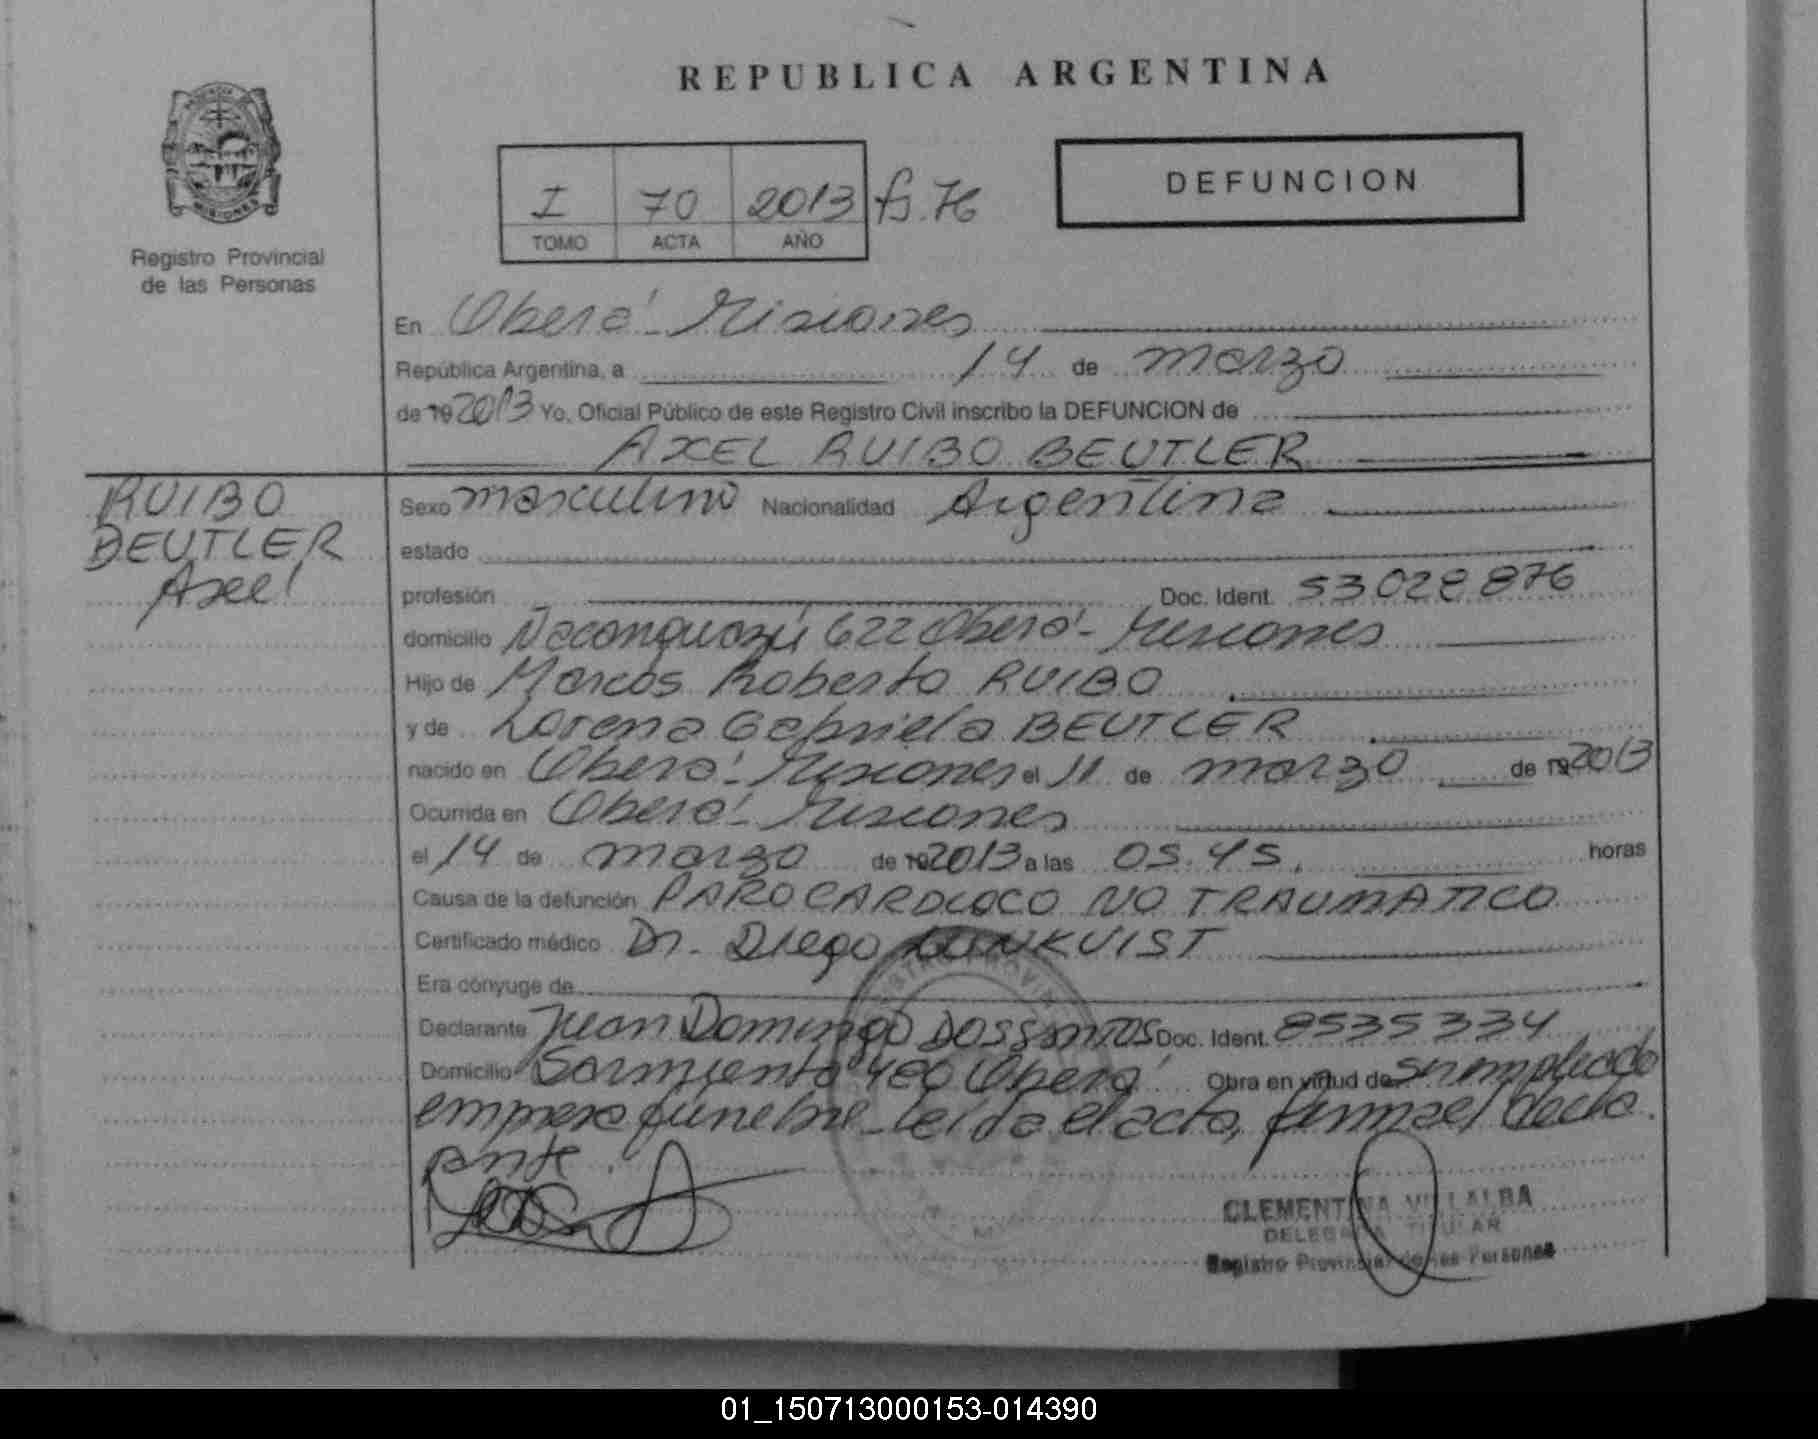 REPUBLICA ARGENTINA
I 70 2013 fs. 76
TOMO ACTA AÑO
DEFUNCION
Registro Provincial
de las Personas
En Oberá - Misiones
República Argentina, a 14 de marzo
de 19 2013 Yo, Oficial Público de este Registro Civil inscribo la DEFUNCION de
AXEL RUIBO BEUTLER
RUIBO
BEUTLER
Axel
Sexo masculino Nacionalidad Argentina
estado
profesión Doc. Ident. 53.028.876
domicilio 622 Oberá - Misiones
Hijo de Marcos Roberto RUIBO
y de Lorena Gabriela BEUTLER
nacido en Oberá - Misiones el 11 de marzo de 19 2013
Ocurrida en Oberá - Misiones
el 14 de marzo de 19 2013 a las 05.45. horas
Causa de la defunción PARO CARDIACO NO TRAUMATICO
Certificado médico Dr. Diego LUNKVIST
Era cónyuge de
Declarante Juan Domingo DOSSANTOS Doc. Ident. 8535334
Domicilio Sarmiento 480 Oberá Obra en virtud de ser empleado
empresa fúnebre - leída el acta, firma el decla
rante.
CLEMENTINA VILLALBA
DELEGADA TITULAR
Registro Provincial de las Personas
01_150713000153-014390